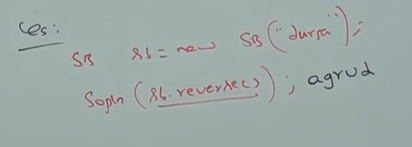 Ces:
SB sb = new SB("durga");
Sopln (sb.reverse()); agrud